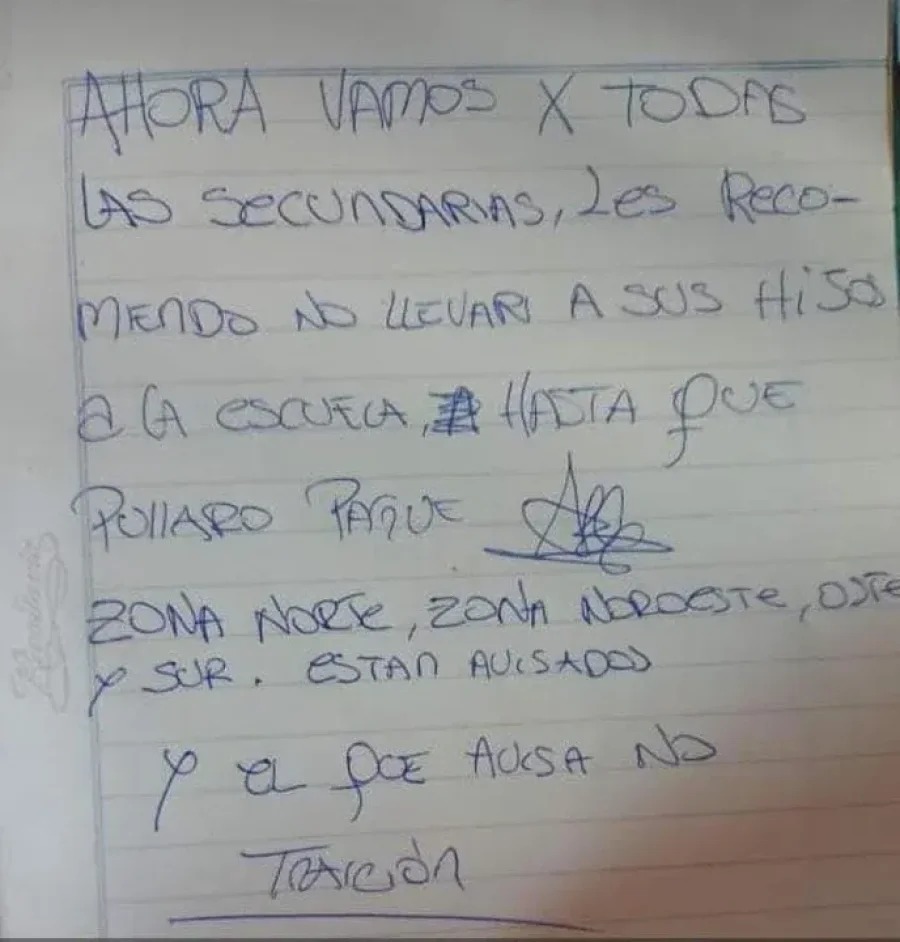 AHORA VAMOS X TODAS
LAS SECUNDARIAS, LES RECO-
MIENDO NO LLEVAR A SUS HIJOS
a LA ESCUELA, HASTA QUE
PULLARO PAGUE
ZONA NORTE, ZONA NOROESTE, OSTE
Y SUR. ESTAN AVISADOS
Y EL QUE AVISA NO
TRAICIÓN
Rivadavia